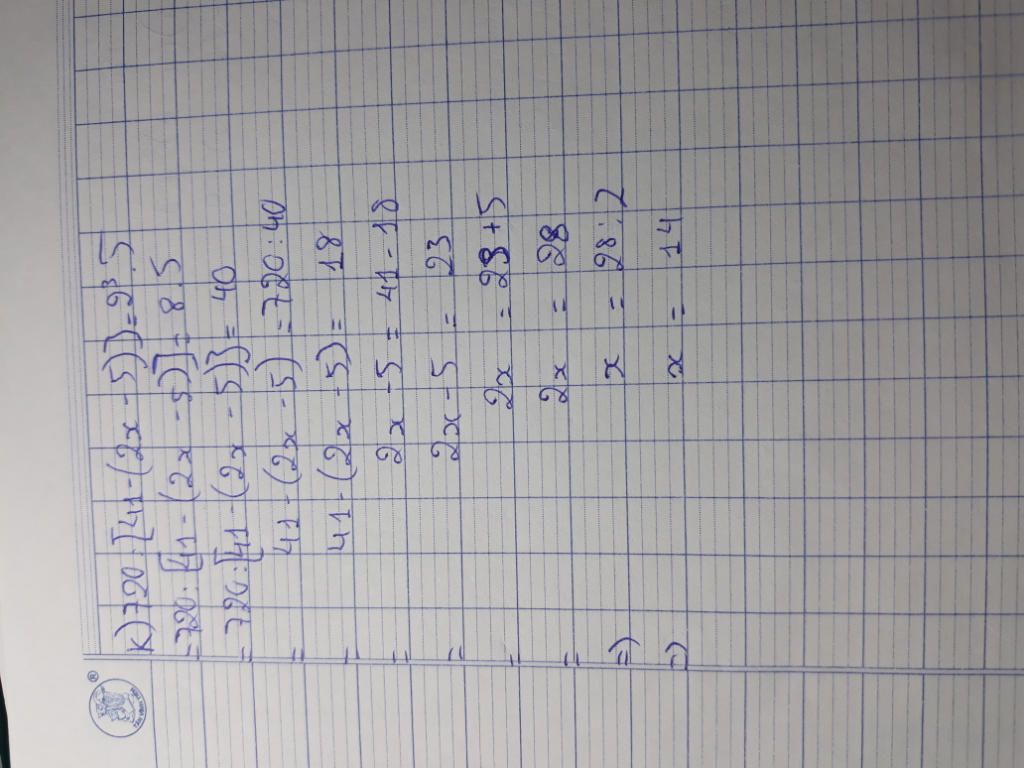 K) 720 : [41 - (2x - 5)] = 2³.5
= 720 : [41 - (2x - 5)] = 8.5
= 720 : [41 - (2x - 5)] = 40
= 41 - (2x - 5) = 720 : 40
= 41 - (2x - 5) = 18
= 2x - 5 = 41 - 18
= 2x - 5 = 23
= 2x = 23 + 5
= 2x = 28
=) x = 28 : 2
=) x = 14